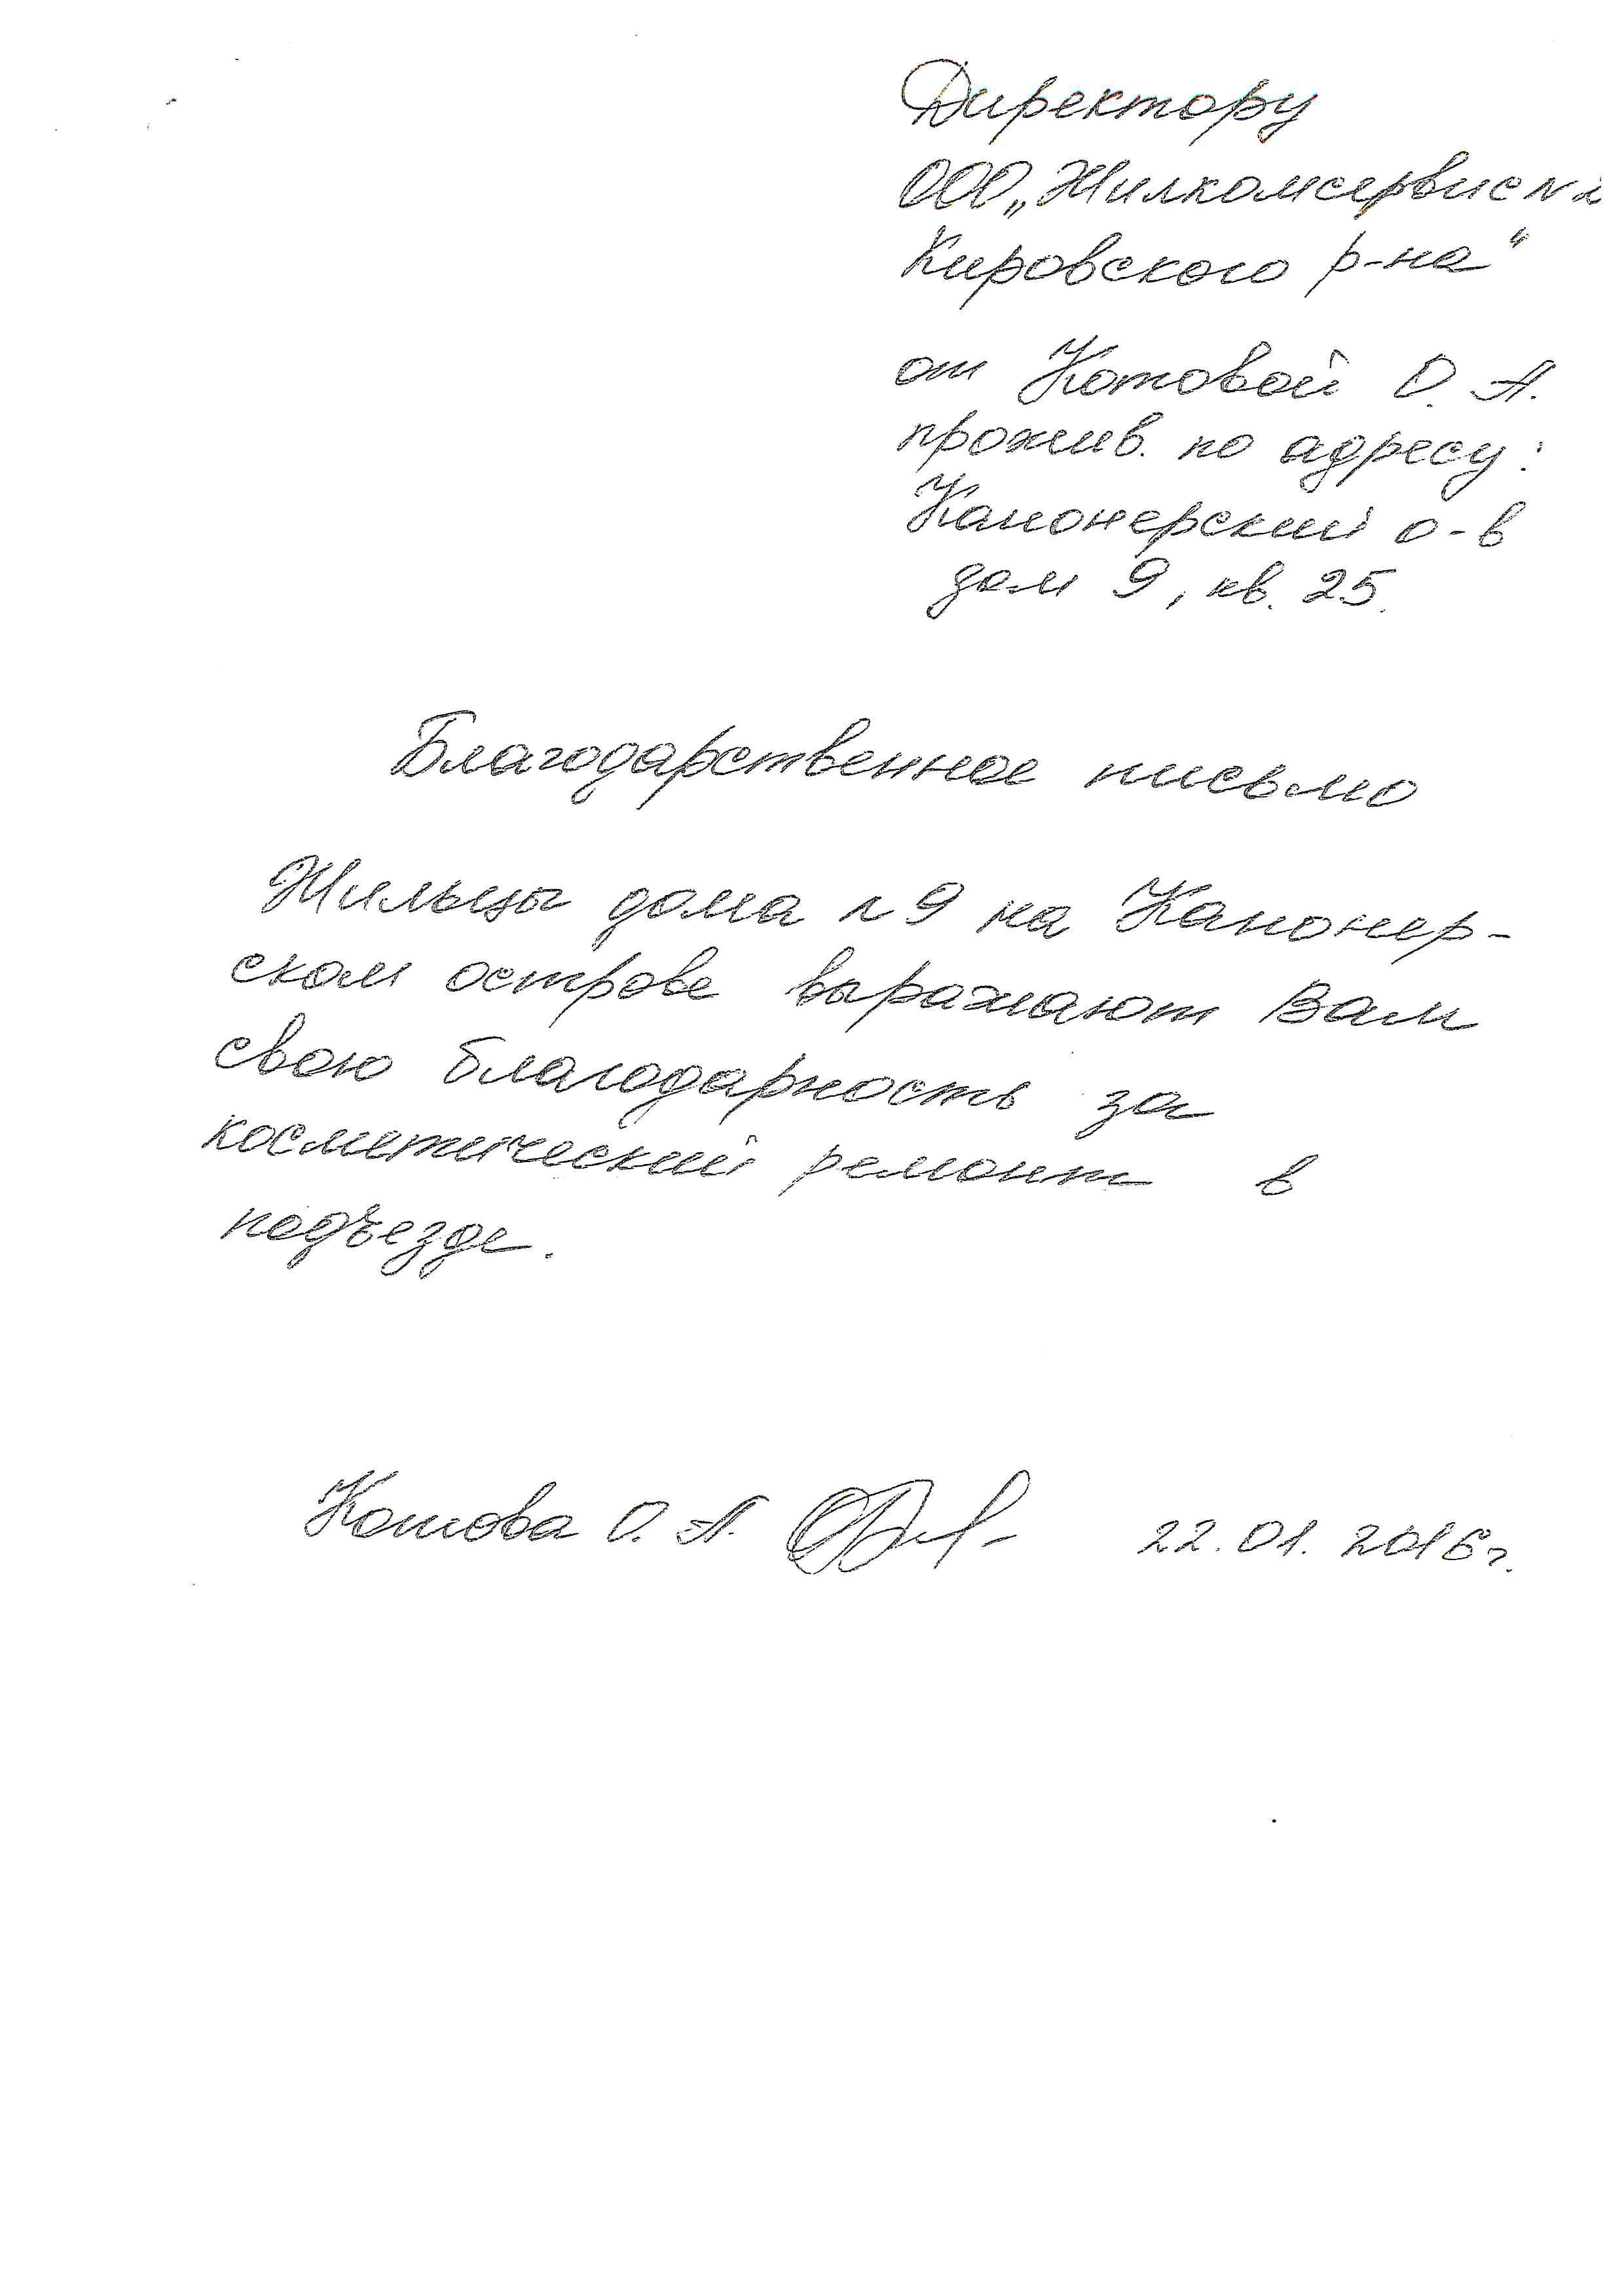 Директору
ООО „Жилкомсервис №
Кировского р-на“
от Котовой О. А.
прожив. по адресу:
Канонерский о-в
дом 9, кв. 25.
Благодарственное письмо
Жильцы дома № 9 на Канонер-
ском острове выражают Вам
свою благодарность за
косметический ремонт в
подъезде.
Котова О. А. 22.01.2016г.